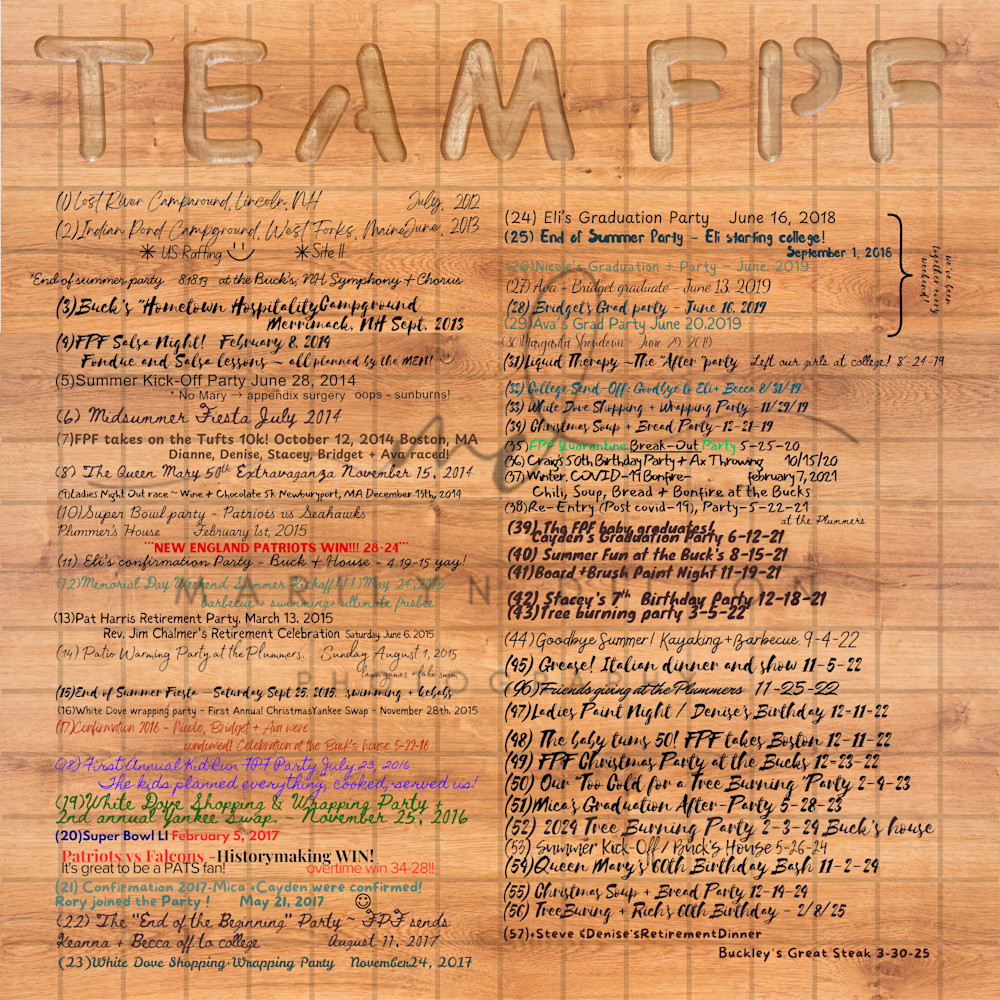 TEAM FPF
(1) Lost River Campground, Lincoln, NH July, 2012
(2) Indian Pond Campground, West Forks, Maine June, 2013
* US Rafting * Site 11
*End of summer party 8.18.13 at the Buck's, NH Symphony + Chorus
(3) Buck's "Hometown Hospitality Campground
Merrimack, NH Sept. 2013
(4) FPF Salsa Night! February 8, 2014
Fondue and Salsa lessons ~ all planned by the MEN!
(5) Summer Kick-Off Party June 28, 2014
* No Mary → appendix surgery oops - sunburns!
(6) Midsummer Fiesta July 2014
(7) FPF takes on the Tufts 10k! October 12, 2014 Boston, MA
Dianne, Denise, Stacey, Bridget + Ava raced!
(8) The Queen Mary 50th Extravaganza November 15, 2014
(9) Ladies Night Out race ~ Wine + Chocolate 5k Newburyport, MA December 13th, 2014
(10) Super Bowl party - Patriots vs Seahawks
Plummer's House February 1st, 2015
***NEW ENGLAND PATRIOTS WIN!!! 28-24***
(11) Eli's confirmation Party - Buck + House - 4.19-15 yay!
(12) Memorial Day Weekend Summer Kickoff!!!! May 24, 2015
barbecue + swimming + ultimate frisbee
(13) Pat Harris Retirement Party, March 13. 2015
Rev. Jim Chalmer's Retirement Celebration Saturday June 6. 2015
(14) Patio Warming Party at the Plummers. Sunday August 1, 2015
lawn games + lake swim
(15) End of Summer Fiesta -Saturday Sept 25, 2015. swimming + kebabs
(16) White Dove wrapping party - First Annual ChristmasYankee Swap - November 28th. 2015
(17) Confirmation 2016 - Nicole, Bridget + Ava were
confirmed! Celebration at the Buck's house 5-22-16
(18) First Annual Kid-Run FPF Party July 23, 2016
The kids planned everything, cooked, served us!
(19) White Dove Shopping & Wrapping Party +
2nd annual Yankee Swap. - November 25, 2016
(20) Super Bowl LI February 5, 2017
Patriots vs Falcons -Historymaking WIN!
It's great to be a PATS fan! overtime win 34-28!!
(21) Confirmation 2017-Mica +Cayden were confirmed!
Rory joined the Party ! May 21, 2017
(22) The "End of the Beginning" Party ~ FPF sends
Keanna + Becca off to college August 11, 2017
(23) White Dove Shopping+Wrapping Party November24, 2017
(24) Eli's Graduation Party June 16, 2018
(25) End of Summer Party - Eli starting college!
September 1, 2018
(26) Nicole's Graduation + Party ~ June. 2019
(27) Ava + Bridget graduate - June 13, 2019
(28) Bridget's Grad party - June 16, 2019
(29) Ava's Grad Party June 20,2019
(30) Margarita Showdown June 29, 2019
we've been together every weekend!
(31) Liquid Therapy ~The "After "party Left our girls at college! 8-24-19
(32) College Send-Off: Goodbye to Eli+ Becca 8/31/19
(33) White Dove Shopping + Wrapping Party - 11/29/19
(34) Christmas Soup + Bread Party-12-21-19
(35) FPF Quarantine Break-Out Party 5-25-20
(36) Craig's 50th Birthday Party + Ax Throwing 10/15/20
(37) Winter. COVID-19 Bonfire- february 7, 2021
Chili, Soup, Bread + Bonfire at the Bucks
(38) Re-Entry (Post covid-19), Party-5-22-21
at the Plummers
(39) The FPF baby graduates!
Cayden's Graduation Party 6-12-21
(40) Summer Fun at the Buck's 8-15-21
(41) Board +Brush Paint Night 11-19-21
(42) Stacey's 7th Birthday Party 12-18-21
(43) Tree burning party 3-5-22
(44) Goodbye Summer! Kayaking+Barbecue 9-4-22
(45) Grease! Italian dinner and show 11-5-22
(46) Friendsgiving at the Plummers 11-25-22
(47) Ladies Paint Night / Denise's Birthday 12-11-22
(48) The baby turns 50! FPF takes Boston 12-11-22
(49) FPF Christmas Party at the Bucks 12-23-22
(50) Our "Too Cold for a Tree Burning "Party 2-4-23
(51) Mica's Graduation After-Party 5-28-23
(52) 2024 Tree Burning Party 2-3-24 Buck's house
(53) Summer Kick-Off / Buck's House 5-26-24
(54) Queen Mary's 60th Birthday Bash 11-2-24
(55) Christmas Soup + Bread Party 12-14-24
(56) TreeBuring + Rich's 60th Birthday - 2/8/25
(57)+Steve &Denise'sRetirementDinner
Buckley's Great Steak 3-30-25
PHOTOGRAPHY